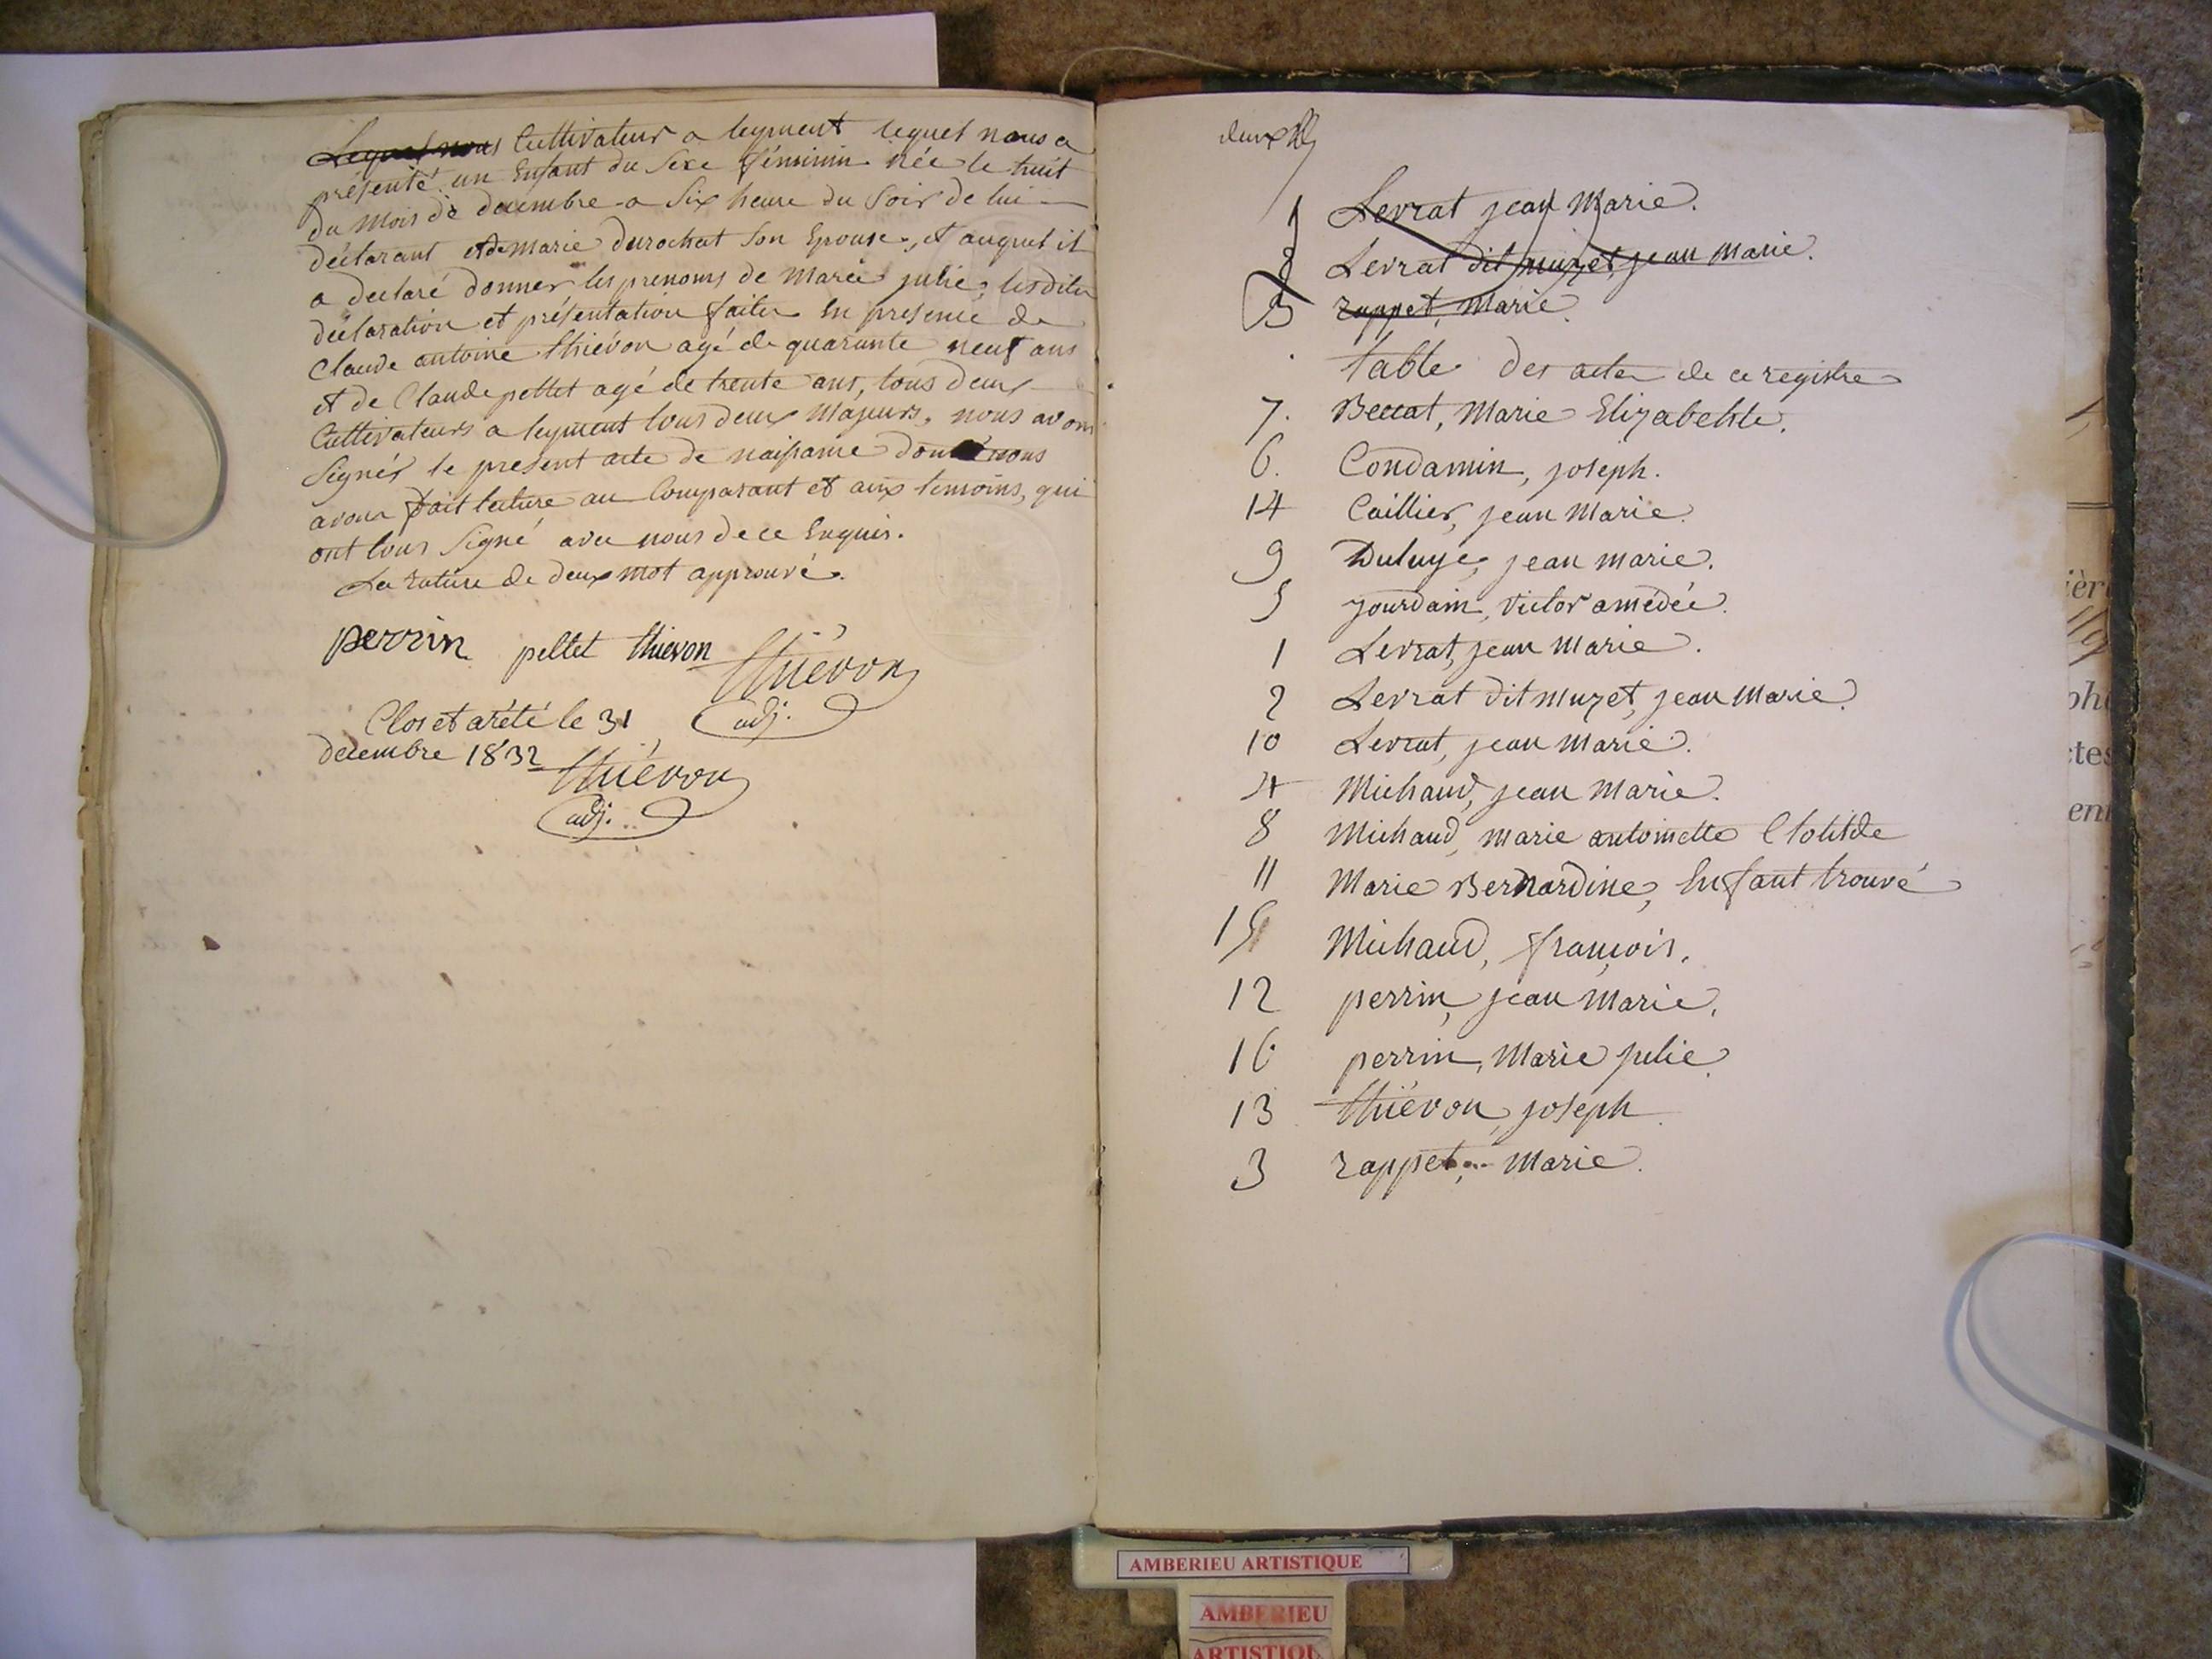 Lequel nous Cultivateur a leyment lequel nous a
présenté un Enfant du Sexe féminin née le huit
du mois de decembre a Six heure du Soir de lui
déclarant et de marie durochat Son Epouse, et auquel il
a declaré donner les prenoms de marie julie; lesdites
déclaration et présentation faites En presence de
Claude antoine thiévon agé de quarante neuf ans
et de Claude pellet agé de trente ans, tous deux
Cultivateurs a leyment tous deux majeurs, nous avons
Signés le present acte de naissance dont nous
avons fait lecture au Comparant et aux temoins, qui
ont tous Signé avec nous de ce Enquis.
La rature de deux mot approuvé.
perrin pellet thievon thiévon
adj.
Clos et arété le 31
decembre 1832 thiévon
adj.
1 Levrat jean Marie.
2 Levrat dit muzet, jean marie.
3 rappet, Marie.
table des actes de ce registre
7. Beccat, Marie Elizabethte.
6. Condamin, joseph.
14 Caillier, jean Marie.
9 Duluye, jean marie.
5 jourdain, victor amédée.
1 Levrat, jean Marie.
2 Levrat dit muzet, jean Marie.
10 Levrat, jean Marie.
4 Michaud, jean Marie.
8 Michaud, marie antoinette Clotilde
11 Marie Bernardine, Enfant trouvé
15 Michaud, françois.
12 perrin, jean Marie.
16 perrin, Marie julie.
13 thiévon, joseph.
3 rappet, Marie.
AMBERIEU ARTISTIQUE
AMBERIEU